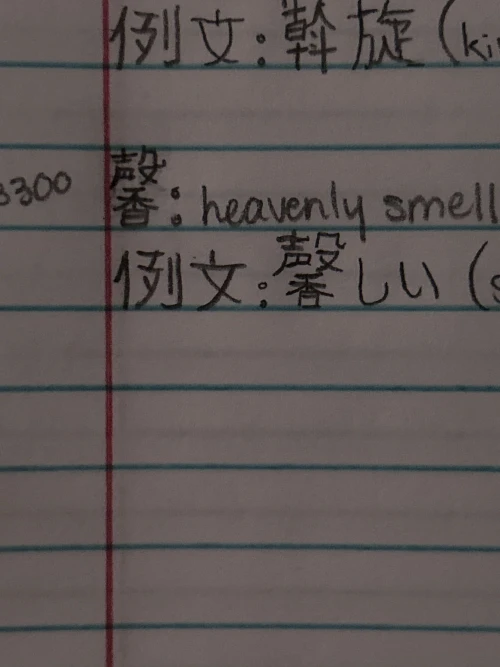 例文:斡旋(ki
3300 馨: heavenly smell
例文:馨しい(s